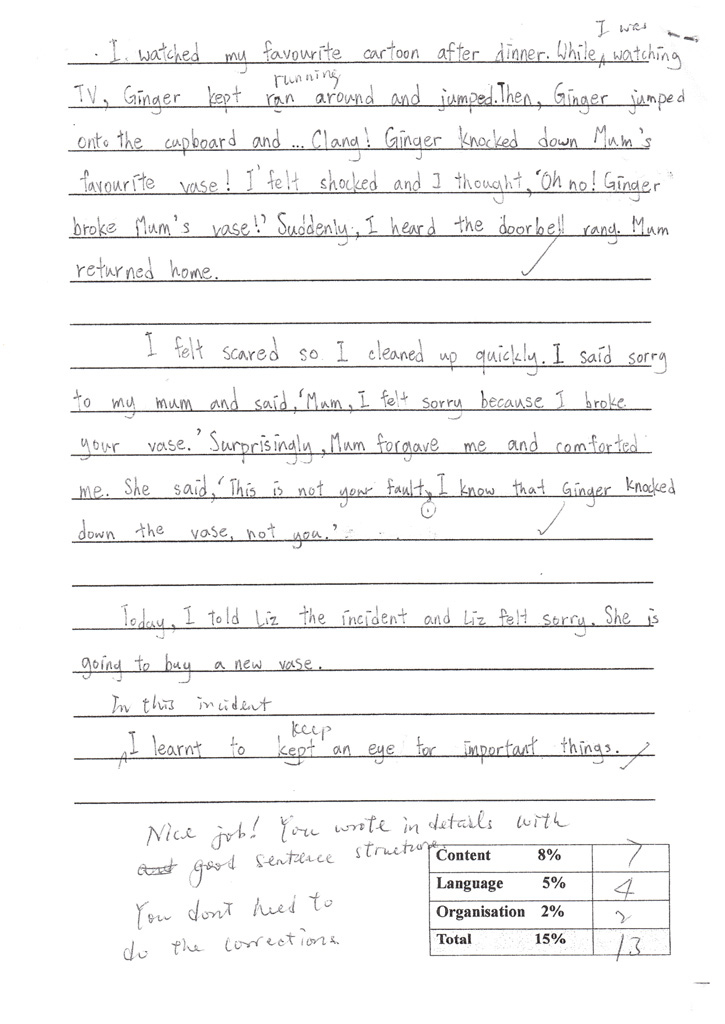 I was
I watched my favourite cartoon after dinner. While watching
running
TV, Ginger kept ran around and jumped. Then, Ginger jumped
onto the cupboard and ... Clang! Ginger knocked down Mum's
favourite vase! I felt shocked and I thought, 'Oh no! Ginger
broke Mum's vase!' Suddenly, I heard the doorbell rang. Mum
returned home.
I felt scared so I cleaned up quickly. I said sorry
to my mum and said, 'Mum, I felt sorry because I broke
your vase.' Surprisingly, Mum forgave me and comforted
me. She said, 'This is not your fault, I know that Ginger knocked
down the vase, not you.'
Today, I told Liz the incident and Liz felt sorry. She is
going to buy a new vase.
In this incident
keep
I learnt to kept an eye for important things.
Nice job! You wrote in details with
and good sentence structure.
You don't need to
do the corrections.
Content 8% 7
Language 5% 4
Organisation 2% 2
Total 15% 13